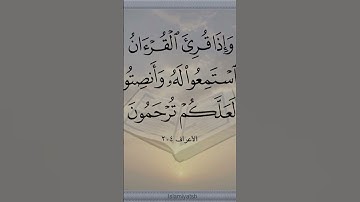 وَإِذَا قُرِئَ ٱلْقُرْءَانُ
ٱسْتَمِعُوا۟ لَهُۥ وَأَنصِتُوا۟
لَعَلَّكُمْ تُرْحَمُونَ
الأعراف ٢٠٤